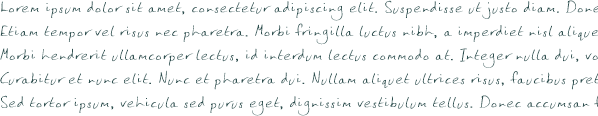 Lorem ipsum dolor sit amet, consectetur adipiscing elit. Suspendisse ut justo diam. Done
Etiam tempor vel risus nec pharetra. Morbi fringilla luctus nibh, a imperdiet nisl alique
Morbi hendrerit ullamcorper lectus, id interdum lectus commodo at. Integer nulla dui, vo
Curabitur et nunc elit. Nunc et pharetra dui. Nullam aliquet ultrices risus, faucibus pret
Sed tortor ipsum, vehicula sed purus eget, dignissim vestibulum tellus. Donec accumsan t